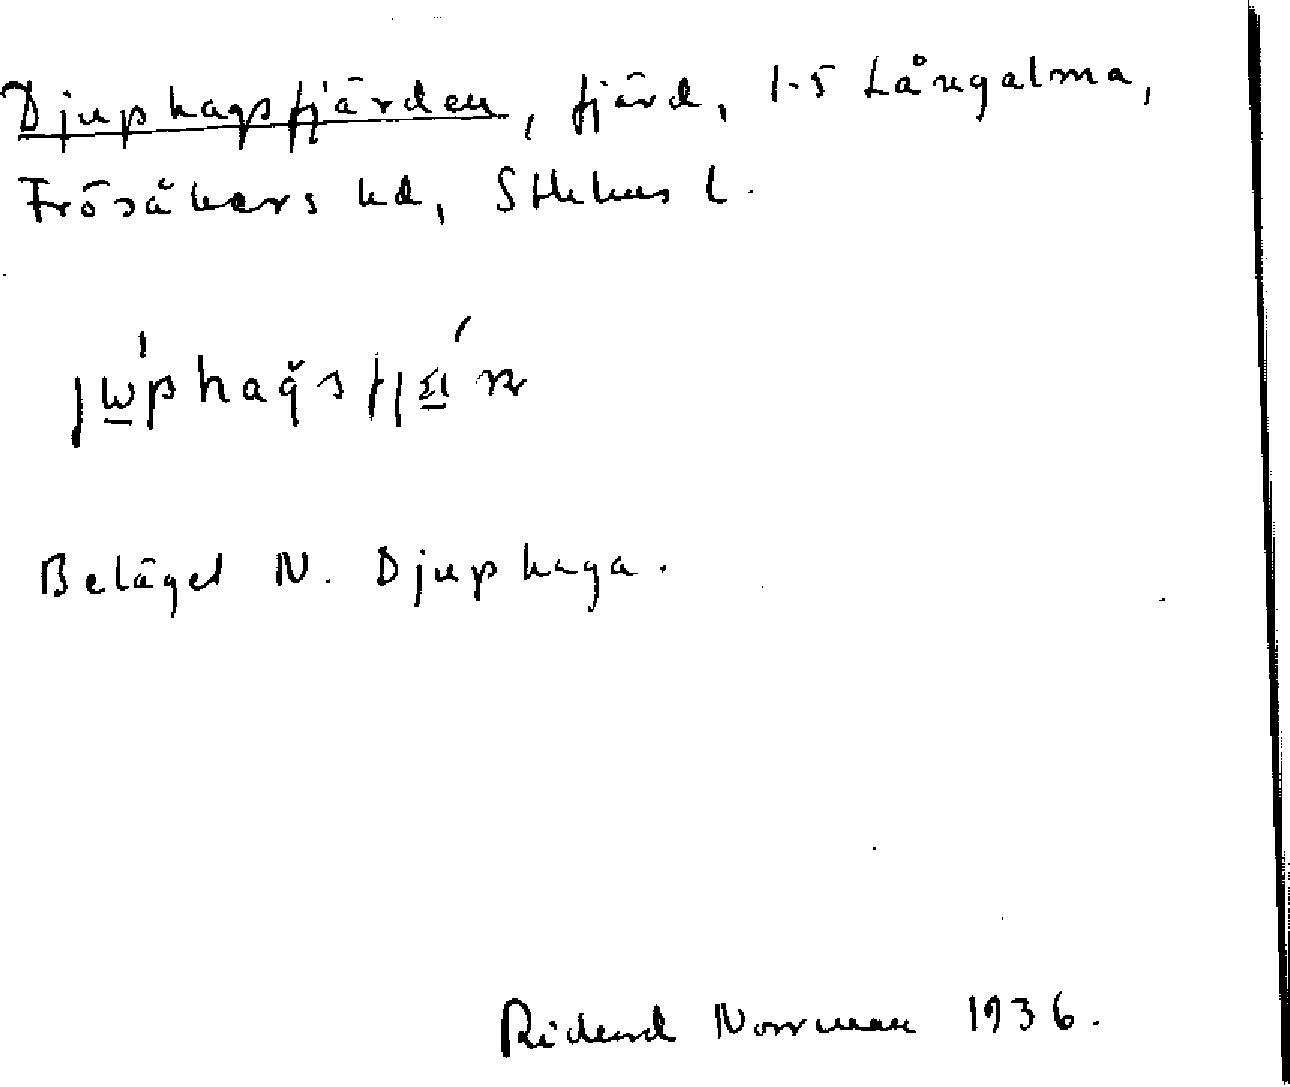 Djuphagsfjärden, fjärd, 1-5 Långalma,
Frösåkers hd, Sthlms l.
Beläget N. Djuphaga.
Rickard Norrman 1936.